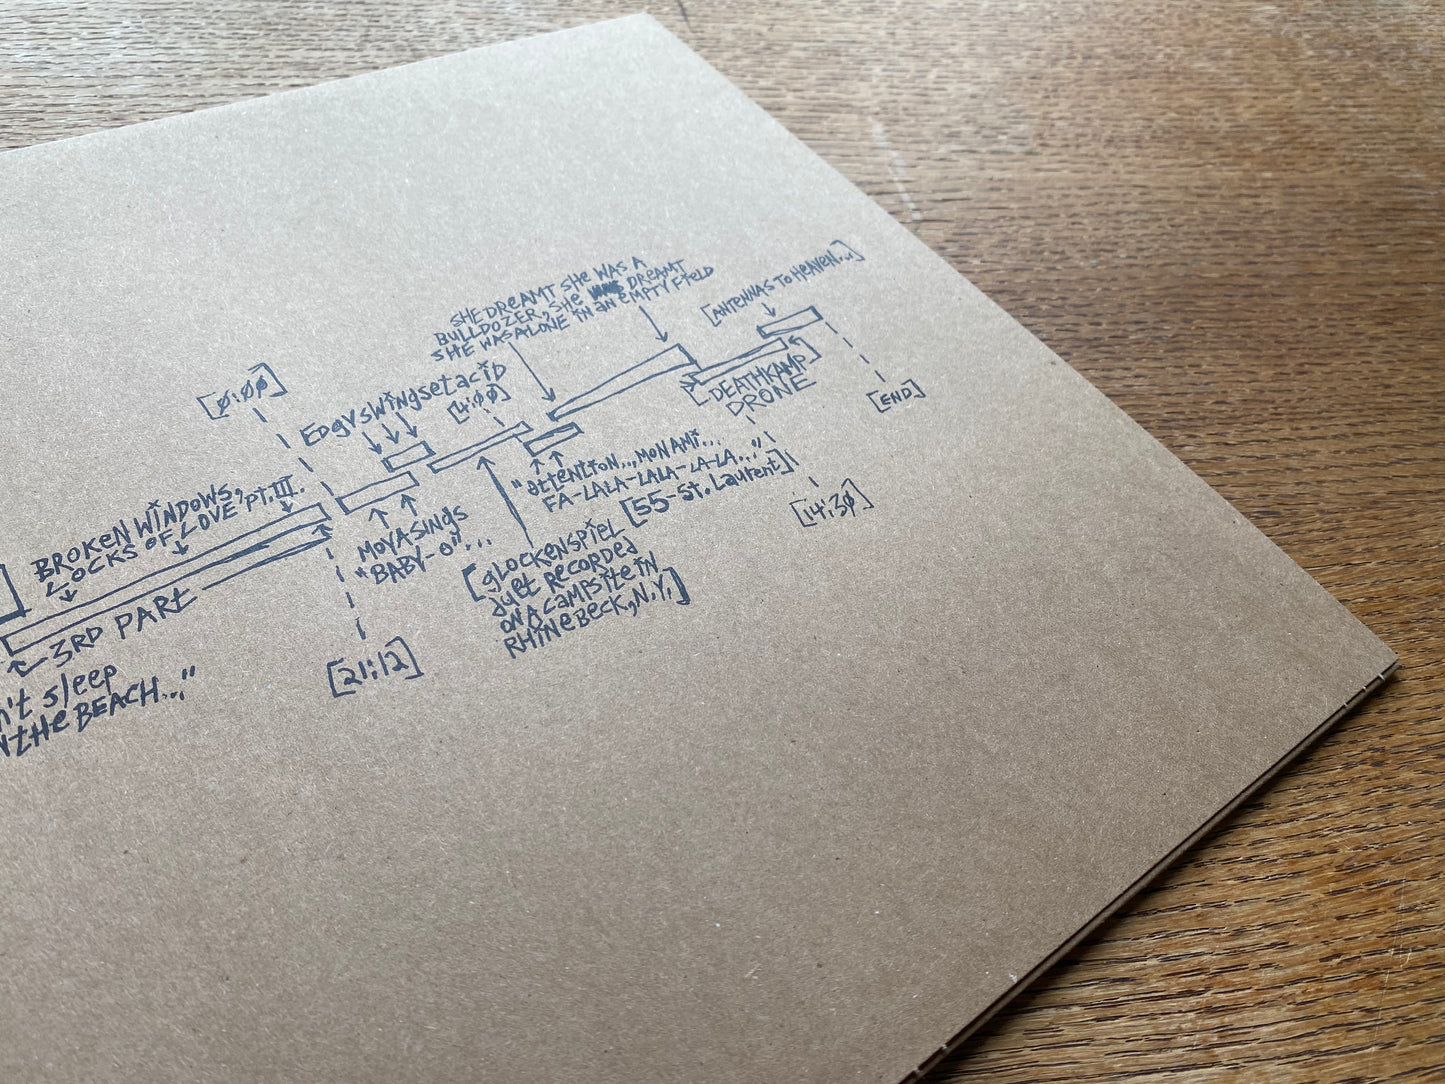 SHE DREAMT SHE WAS A
BULLDOZER, SHE DREAMT
SHE WAS ALONE IN AN EMPTY FIELD
[ANTENNAS TO HEAVEN...]
[0:00]
EDgYSWiNgSetACiD
[4:00]
[DEATHKAMP
DRONE]
[END]
BROKEN WINDOWS,
LOCKS OF LOVE PT. III.
3RD PART
MOYA SINgS
"BABY-O"...
"attention...MON AMI...
FA-LALA-LALA-LA-LA..."
[55-St. Laurent]
[14:30]
[gLOCKENSPIEL
duet RECORDED
ON A CAMPSITE IN
RHINEBECK, N.Y.]
[21:12]
n't sleep
N tHe BEACH..."